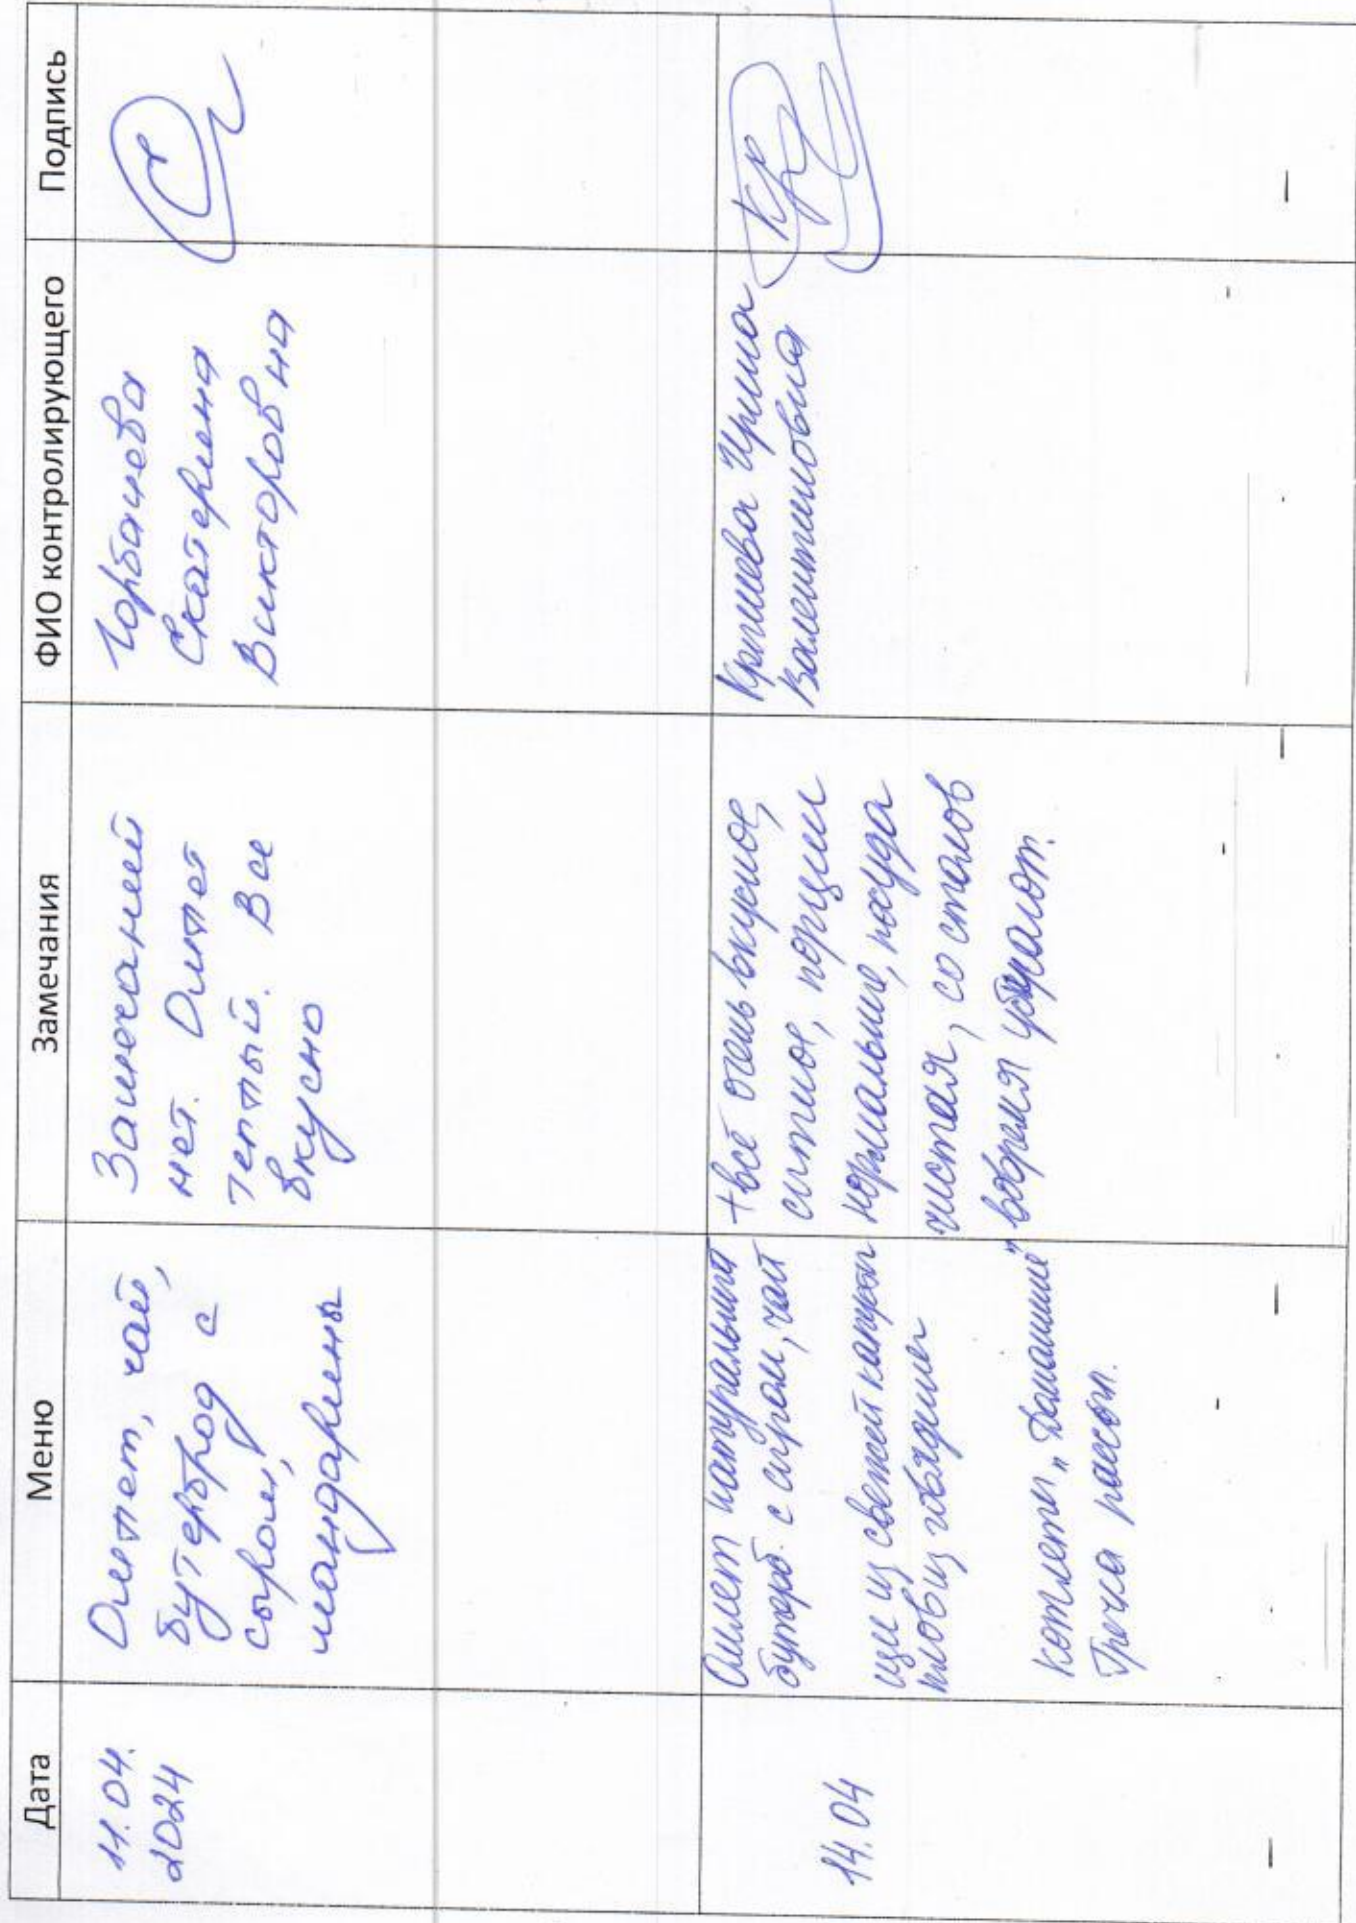 Дата Меню Замечания ФИО контролирующего Подпись
11.04.
2024
Омлет, чай,
бутерброд с
сыром,
мандарины
Замечаний
нет. Омлет
теплый. Все
вкусно
Горбачева
Екатерина
Викторовна
14.04
Омлет натуральный
бутерб. с сыром, чай
щи из свежей капусты
плов из говядины
котлеты „Домашние"
Гречка рассып.
+ всё очень вкусное,
сытное, порции
нормальные, посуда
чистая, со столов
вовремя убирают.
Ирина
Валентиновна
Кр